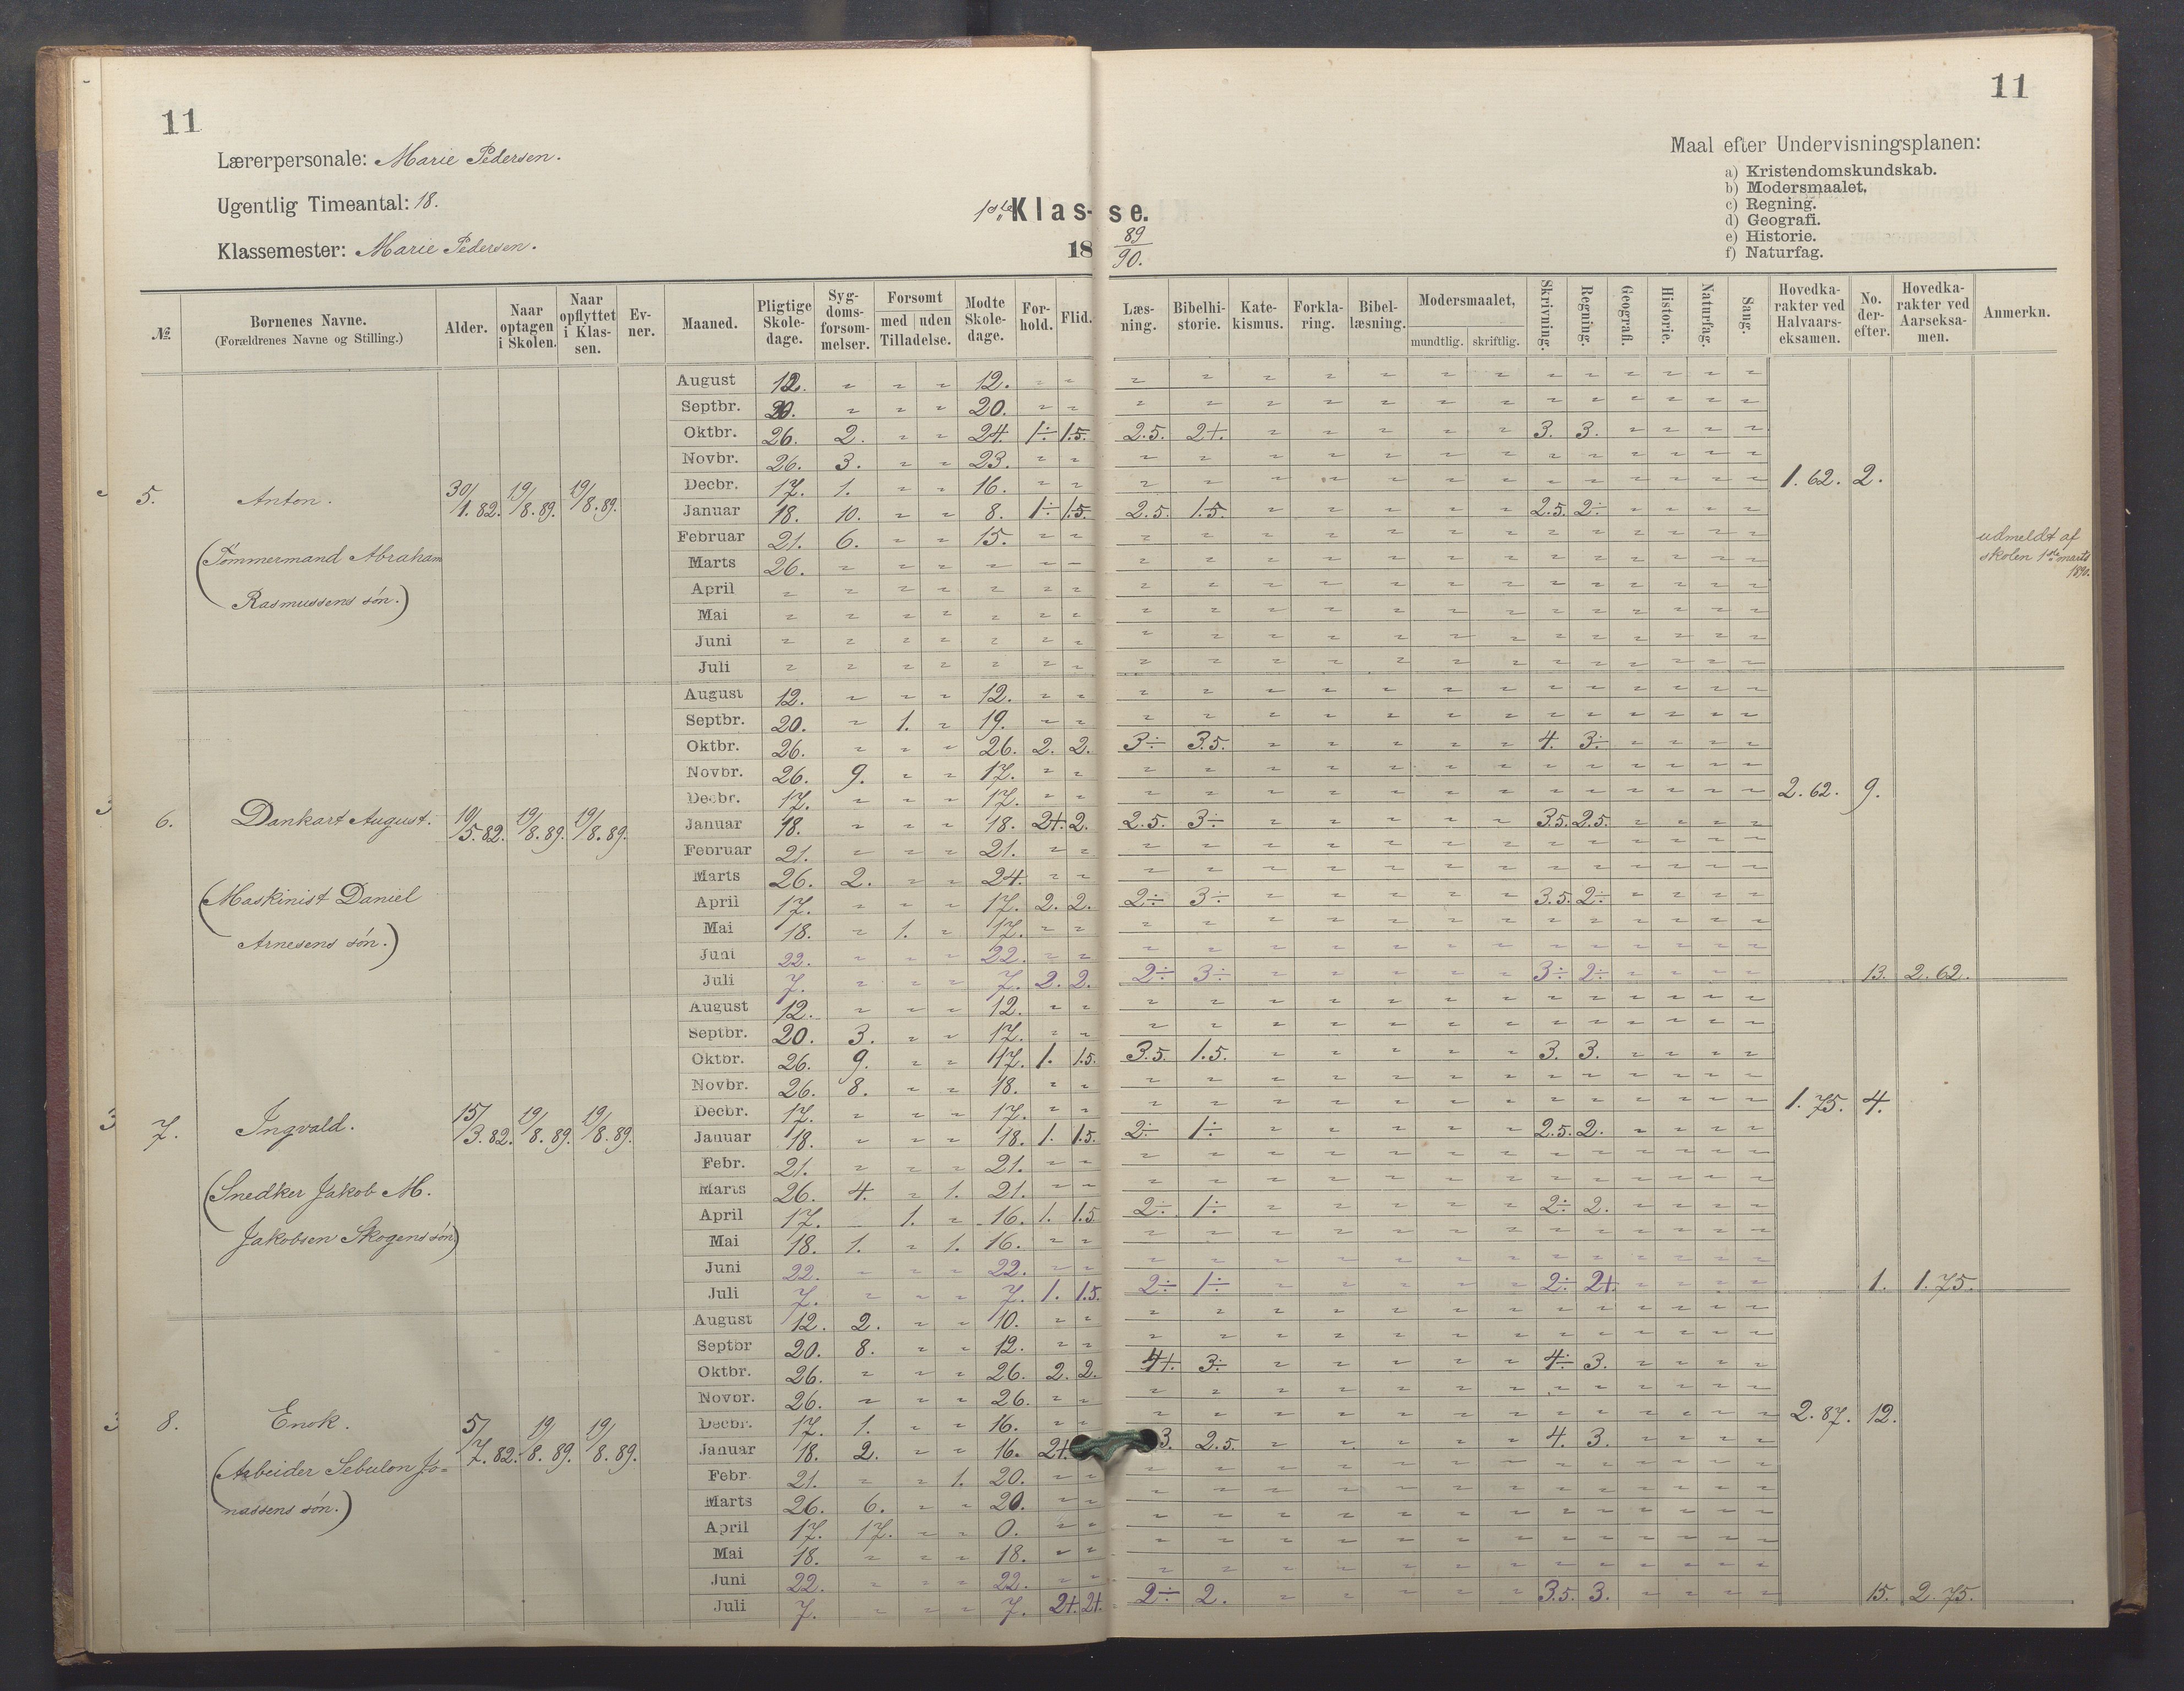 11
11
Lærerpersonale: Marie Pedersen.
Ugentlig Timeantal: 18.
Klassemester: Marie Pedersen.
1ste Klas- se.
18 89/90.
Maal efter Undervisningsplanen:
a) Kristendomskundskab.
b) Modersmaalet.
c) Regning.
d) Geografi.
e) Historie.
f) Naturfag.
№ | Børnenes Navne. (Forældrenes Navne og Stilling.) | Alder. | Naar optagen i Skolen. | Naar opflyttet i Klassen. | Evner. | Maaned. | Pligtige Skoledage. | Sygdomsforsømmelser. | Forsømt med uden Tilladelse. | Mødte Skoledage. | Forhold. | Flid. | Læsning. | Bibelhistorie. | Katekismus. | Forklaring. | Bibellæsning. | Modersmaalet, mundtlig. skriftlig. | Skrivning. | Regning. | Geografi. | Historie. | Naturfag. | Sang. | Hovedkarakter ved Halvaarseksamen. | No. derefter. | Hovedkarakter ved Aarseksamen. | Anmerkn.
5. Anton. 30/1.82. 19/8.89. 19/8.89.
(Tömmermand Abraham
Rasmussens søn.)
August 12. " " " 12. " "
Septbr. 20. " " " 20. " "
Oktbr. 26. 2. " " 24. 1÷ 1.5. 2.5. 2+. " " " " " 3. 3. " " " "
Novbr. 26. 3. " " 23. " "
Decbr. 17. 1. " " 16. " " 1.62. 2.
Januar 18. 10. " " 8. 1÷ 1.5. 2.5. 1.5. " " " " " 2.5. 2÷ " " " "
Februar 21. 6. " " 15. " "
Marts 26. " " " " " "
April " " " " " " "
Mai " " " " " " "
Juni " " " " " " "
Juli " " " " " " "
udmeldt af
skolen 1ste marts
1890.
6. Dankart August. 19/5.82. 19/8.89. 19/8.89.
(Maskinist Daniel
Arnesens søn.)
August 12. " " " 12. " "
Septbr. 20. " 1. " 19. " "
Oktbr. 26. " " " 26. 2. 2. 3÷ 3.5. " " " " " 4. 3÷ " " " "
Novbr. 26. 9. " " 17. " "
Decbr. 17. " " " 17. " " 2.62. 9.
Januar 18. " " " 18. 2+. 2. 2.5. 3÷ " " " " " 3.5. 2.5. " " " "
Februar 21. " " " 21. " "
Marts 26. 2. " " 24. " "
April 17. " " " 17. 2. 2. 2÷ 3÷ " " " " " 3.5. 2÷ " " " "
Mai 18. " 1. " 17. " "
Juni 22. " " " 22. " "
Juli 7. " " " 7. 2. 2. 2÷ 3÷ " " " " " 3÷ 2÷ " " " " 13. 2.62.
7. Ingvald. 15/3.82. 19/8.89. 19/8.89.
(Snedker Jakob M.
Jakobsen Skogens søn)
August 12. " " " 12. " "
Septbr. 20. 3. " " 17. " "
Oktbr. 26. 9. " " 17. 1. 1.5. 3.5. 1.5. " " " " " 3. 3. " " " "
Novbr. 26. 8. " " 18. " "
Decbr. 17. " " " 17. " " 1.75. 4.
Januar 18. " " " 18. 1. 1.5. 2÷ 1÷ " " " " " 2.5. 2. " " " "
Febr. 21. " " " 21. " "
Marts 26. 4. " 1. 21. " "
April 17. 1. " 16. 1. 1.5 2÷ 1÷ " " " " " 2÷ 2. " " " "
Mai 18. 1. " 1. 16. " "
Juni 22. " " " 22. " "
Juli 7. " " " 7. 1. 1.5. 2÷ 1÷ " " " " " 2÷ 2+. " " " " 1. 1.75.
8. Enok. 5/7.82. 19/8.89. 19/8.89.
(Arbeider Sebulon Jo=
nassens søn.)
August 12. 2. " " 10. " "
Septbr 20. 8. " " 12. " "
Oktbr. 26. " " " 26. 2. 2. 4+. 3÷ " " " " " 4÷ 3. " " " "
Novbr. 26. " " " 26. " "
Decbr. 17. 1. " " 16. " " 2.87. 12.
Januar 18. 2. " " 16. 2+. 3. 2.5. " " " " " 4. 3. " " " "
Febr 21. " " 1. 20. " "
Marts 26. 6. " " 20. " "
April 17. 17. " " 0. " "
Mai 18. " " " 18. " "
Juni 22. " " " 22. " "
Juli 7. " " " 7. 2+. 2+. 2÷ 2. " " " " " 3.5. 3. " " " " 15. 2.75.